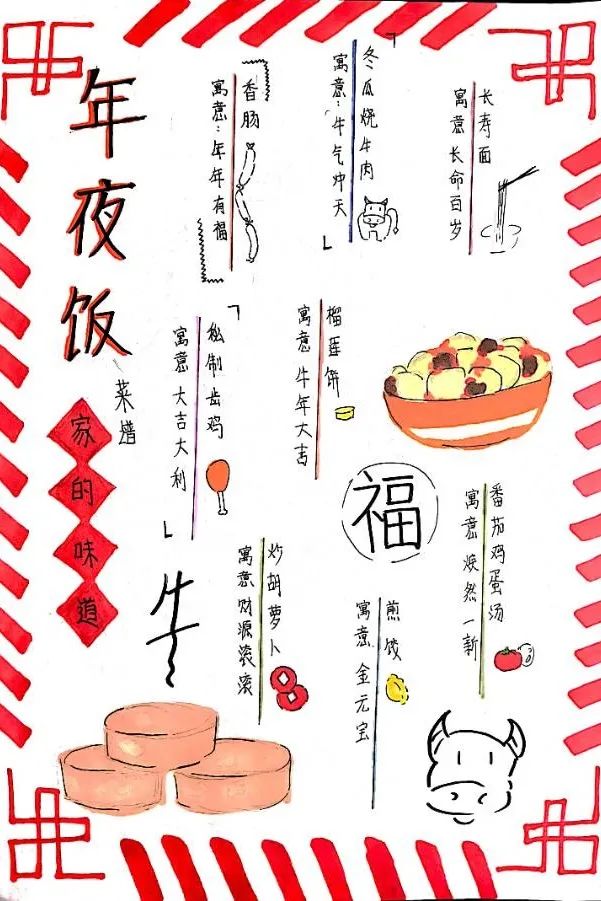 年夜饭
菜譜
家的味道
香肠
寓意：年年有福
冬瓜烧牛肉
寓意：牛气冲天
长寿面
寓意 长命百岁
秘制 鸡
寓意 大吉大利
榴莲饼
寓意 牛年大吉
福
番茄鸡蛋汤
寓意 焕然一新
炒胡萝卜
寓意 财源滚滚
煎饺
寓意 金元宝
牛